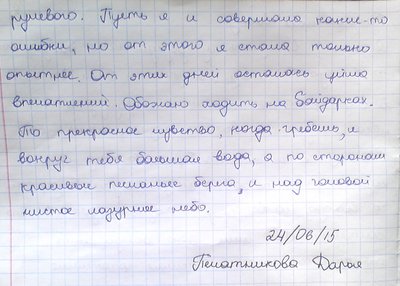 рулевого. Пусть я и совершала какие-то
ошибки, но от этого я стала только
опытнее. От этих дней осталась уйма
впечатлений. Обожаю ходить на байдарках.
То прекрасное чувство, когда гребешь, и
вокруг тебя большая вода, а по сторонам
красивые песчаные берега, и над головой
чистое лазурное небо.
24/06/15
Печатникова Дарья